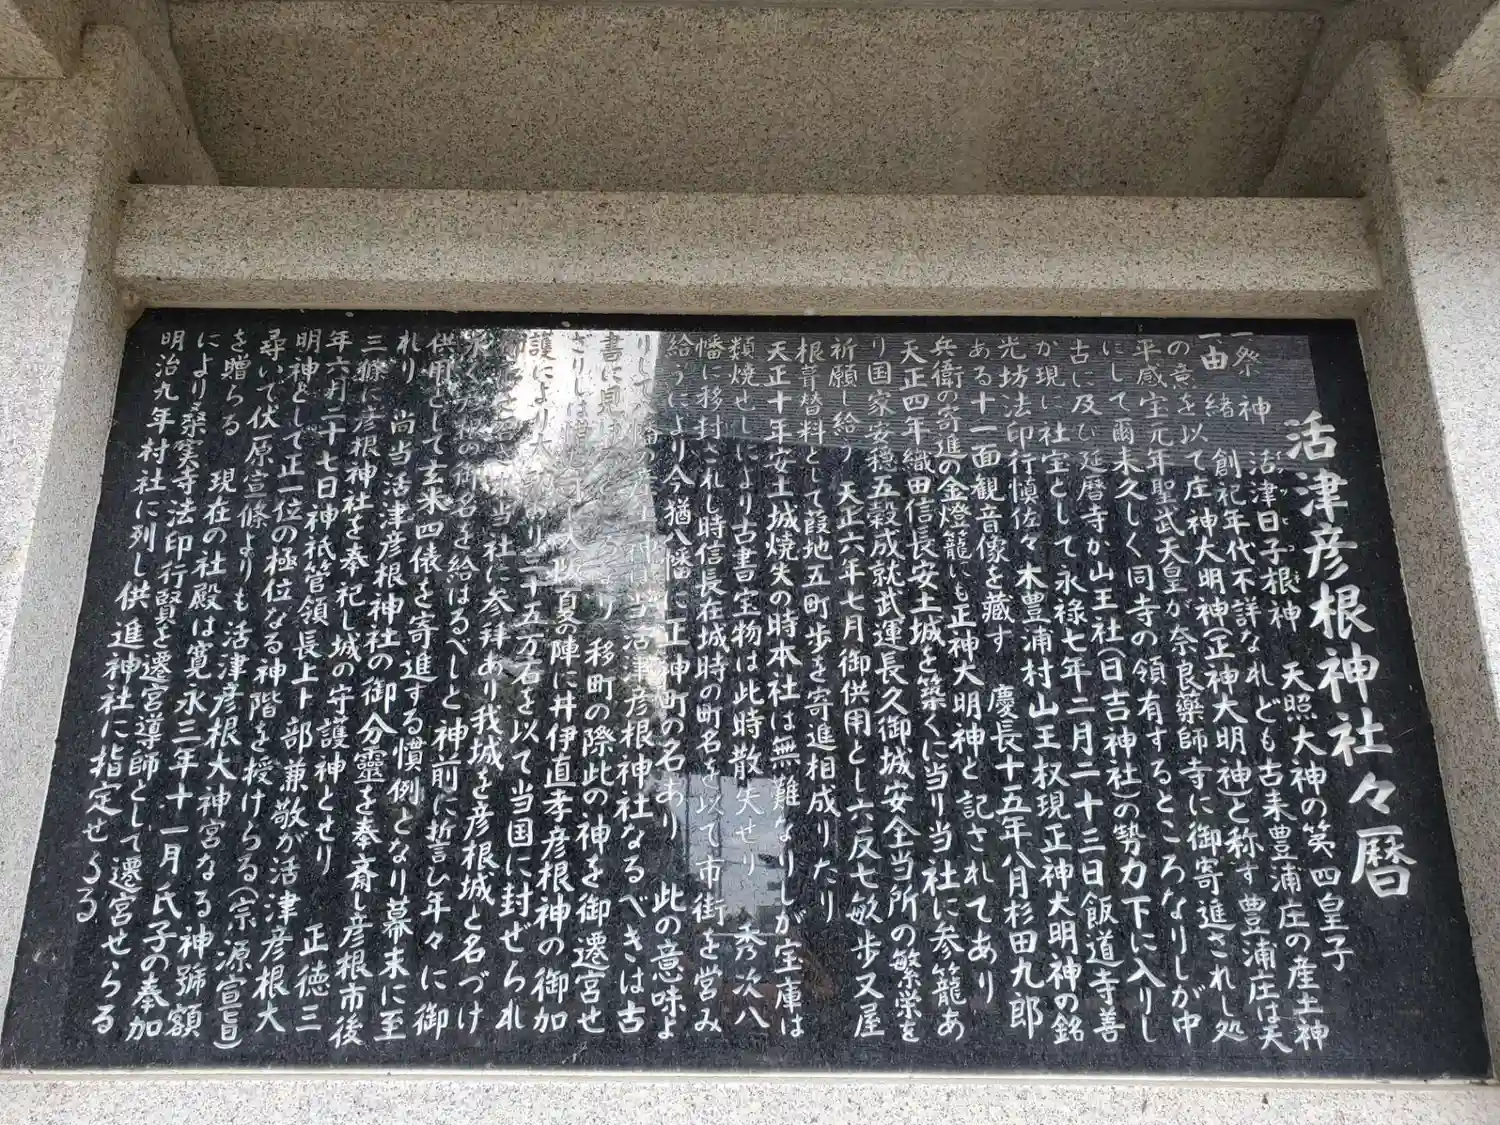 活津彦根神社々暦
一祭神 活津日子根神 天照大神の第四皇子
一由緒 創祀年代不詳なれども古来豊浦庄の産土神
の意を以て庄神大明神(正神大明神)と称す豊浦庄は天
平感宝元年聖武天皇が奈良薬師寺に御寄進されし処
にして爾来久しく同寺の領有するところなりしが中
古に及び延暦寺か山王社(日吉神社)の勢力下に入りし
か現に社宝として永禄七年二月二十三日飯道寺善
光坊法印行慎佐々木豊浦村山王权現正神大明神の銘
ある十一面観音像を藏す 慶長十五年八月杉田九郎
兵衛の寄進の金燈籠にも正神大明神と記されてあり
天正四年織田信長安土城を築くに当り当社に参籠あ
り国家安穏五穀成就武運長久御城安全当所の繁栄を
祈願し給う 天正六年七月御供用とし六反七畝歩又屋
根葺替料として葭地五町歩を寄進相成りたり
天正十年安土城焼失の時本社は無難なりしが宝庫は
類焼せしにより古書宝物は此時散失せり 秀次八
幡に移封されし時信長在城時の町名を以て市街を営み
給うにより今猶八幡に正神町の名あり 此の意味よ
りして八幡の産土神は当活津彦根神社なるべきは古
書に見 移町の際此の神を御遷宮せ
ざりしは惜 大坂夏の陣に井伊直孝彦根神の御加
護により大 二十五万石を以て当国に封ぜられ
当社に参拝あり我城を彦根城と名づけ
永く の御名を給はるべしと神前に折言ひ年々に御
供用として玄米四俵を寄進する慣例となり幕末に至
れり 尚当活津彦根神社の御分霊を奉斎し彦根市後
三條に彦根神社を奉祀し城の守護神とせり 正徳三
年六月二十七日神祇管領長上卜部兼敬が活津彦根大
明神として正一位の極位なる神階を授けらる(宗源宣旨)
尋いで伏原宣條よりも活津彦根大神宮なる神號額
を贈らる 現在の社殿は寛永三年十一月氏子の奉加
により桑実寺法印行賢を遷宮導師として遷宮せらる
明治九年村社に列し供進神社に指定せらる